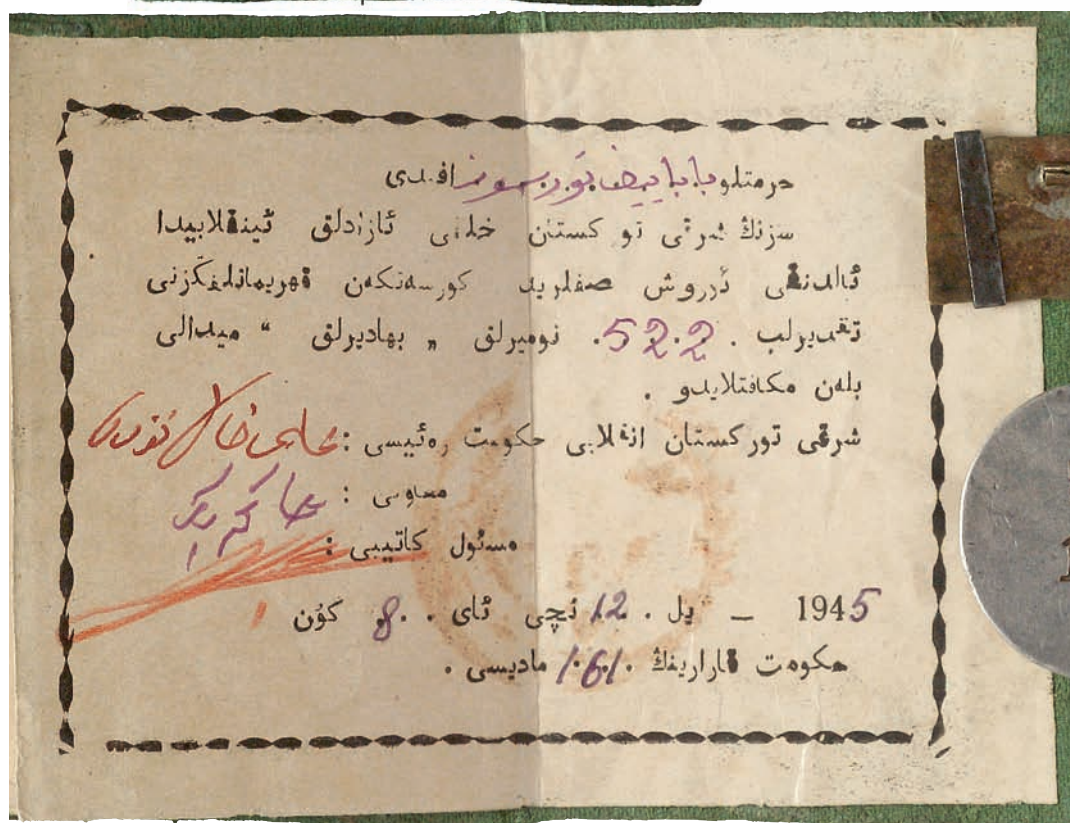 حرمتلو باباييف تورسون افندى
سزنڭ شرقى توركستان خلقى ئازادلق ئينقلابيدا
ئالدنقى ئۇروش صفلريدا كورسەتكەن قهريمانلغڭزنى
تقديرلب . 522 . نوميرلق „ بهاديرلق “ ميدالى
بلەن مكافتلايدو .
شرقى توركستان انقلابى حكومت رەئيسى :
معاوىى : حاكم بك
مسئول كاتيبى :
1945 – يل . 12 ئچى ئاى . 8 . كۈن
حكومت قارارينڭ . 161 ماديسى .